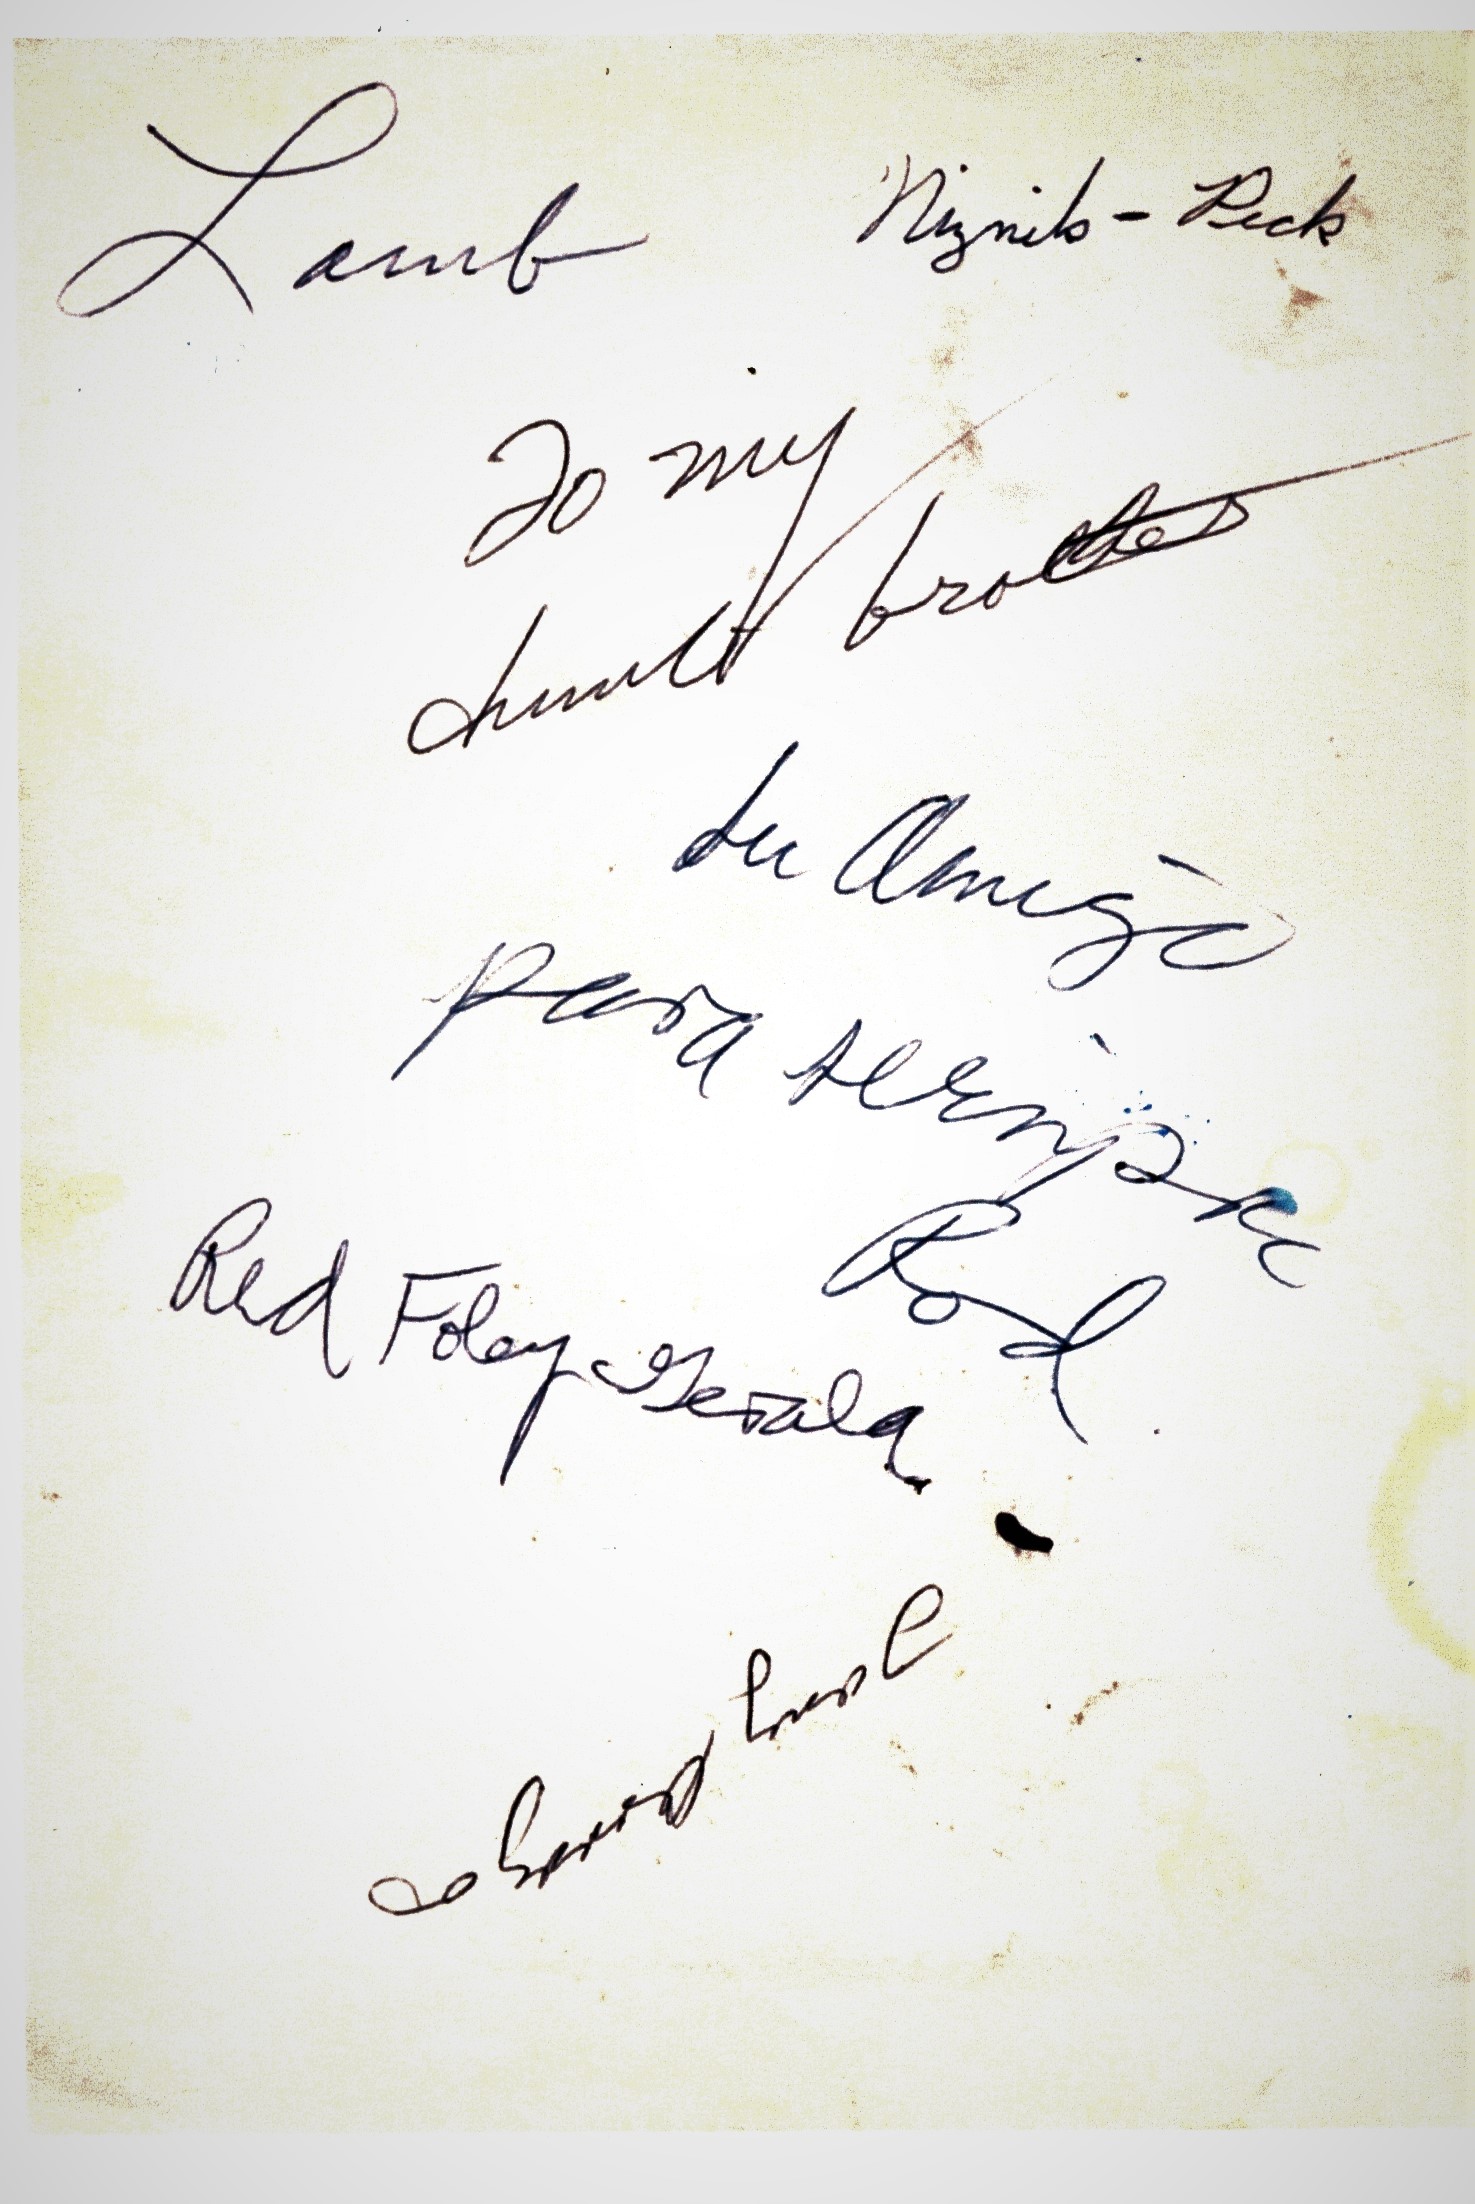 Lamb
Niznik - Peck
To my
drunk brother
tu Amigo
para sempre
Rod
Red Foley - Gerald